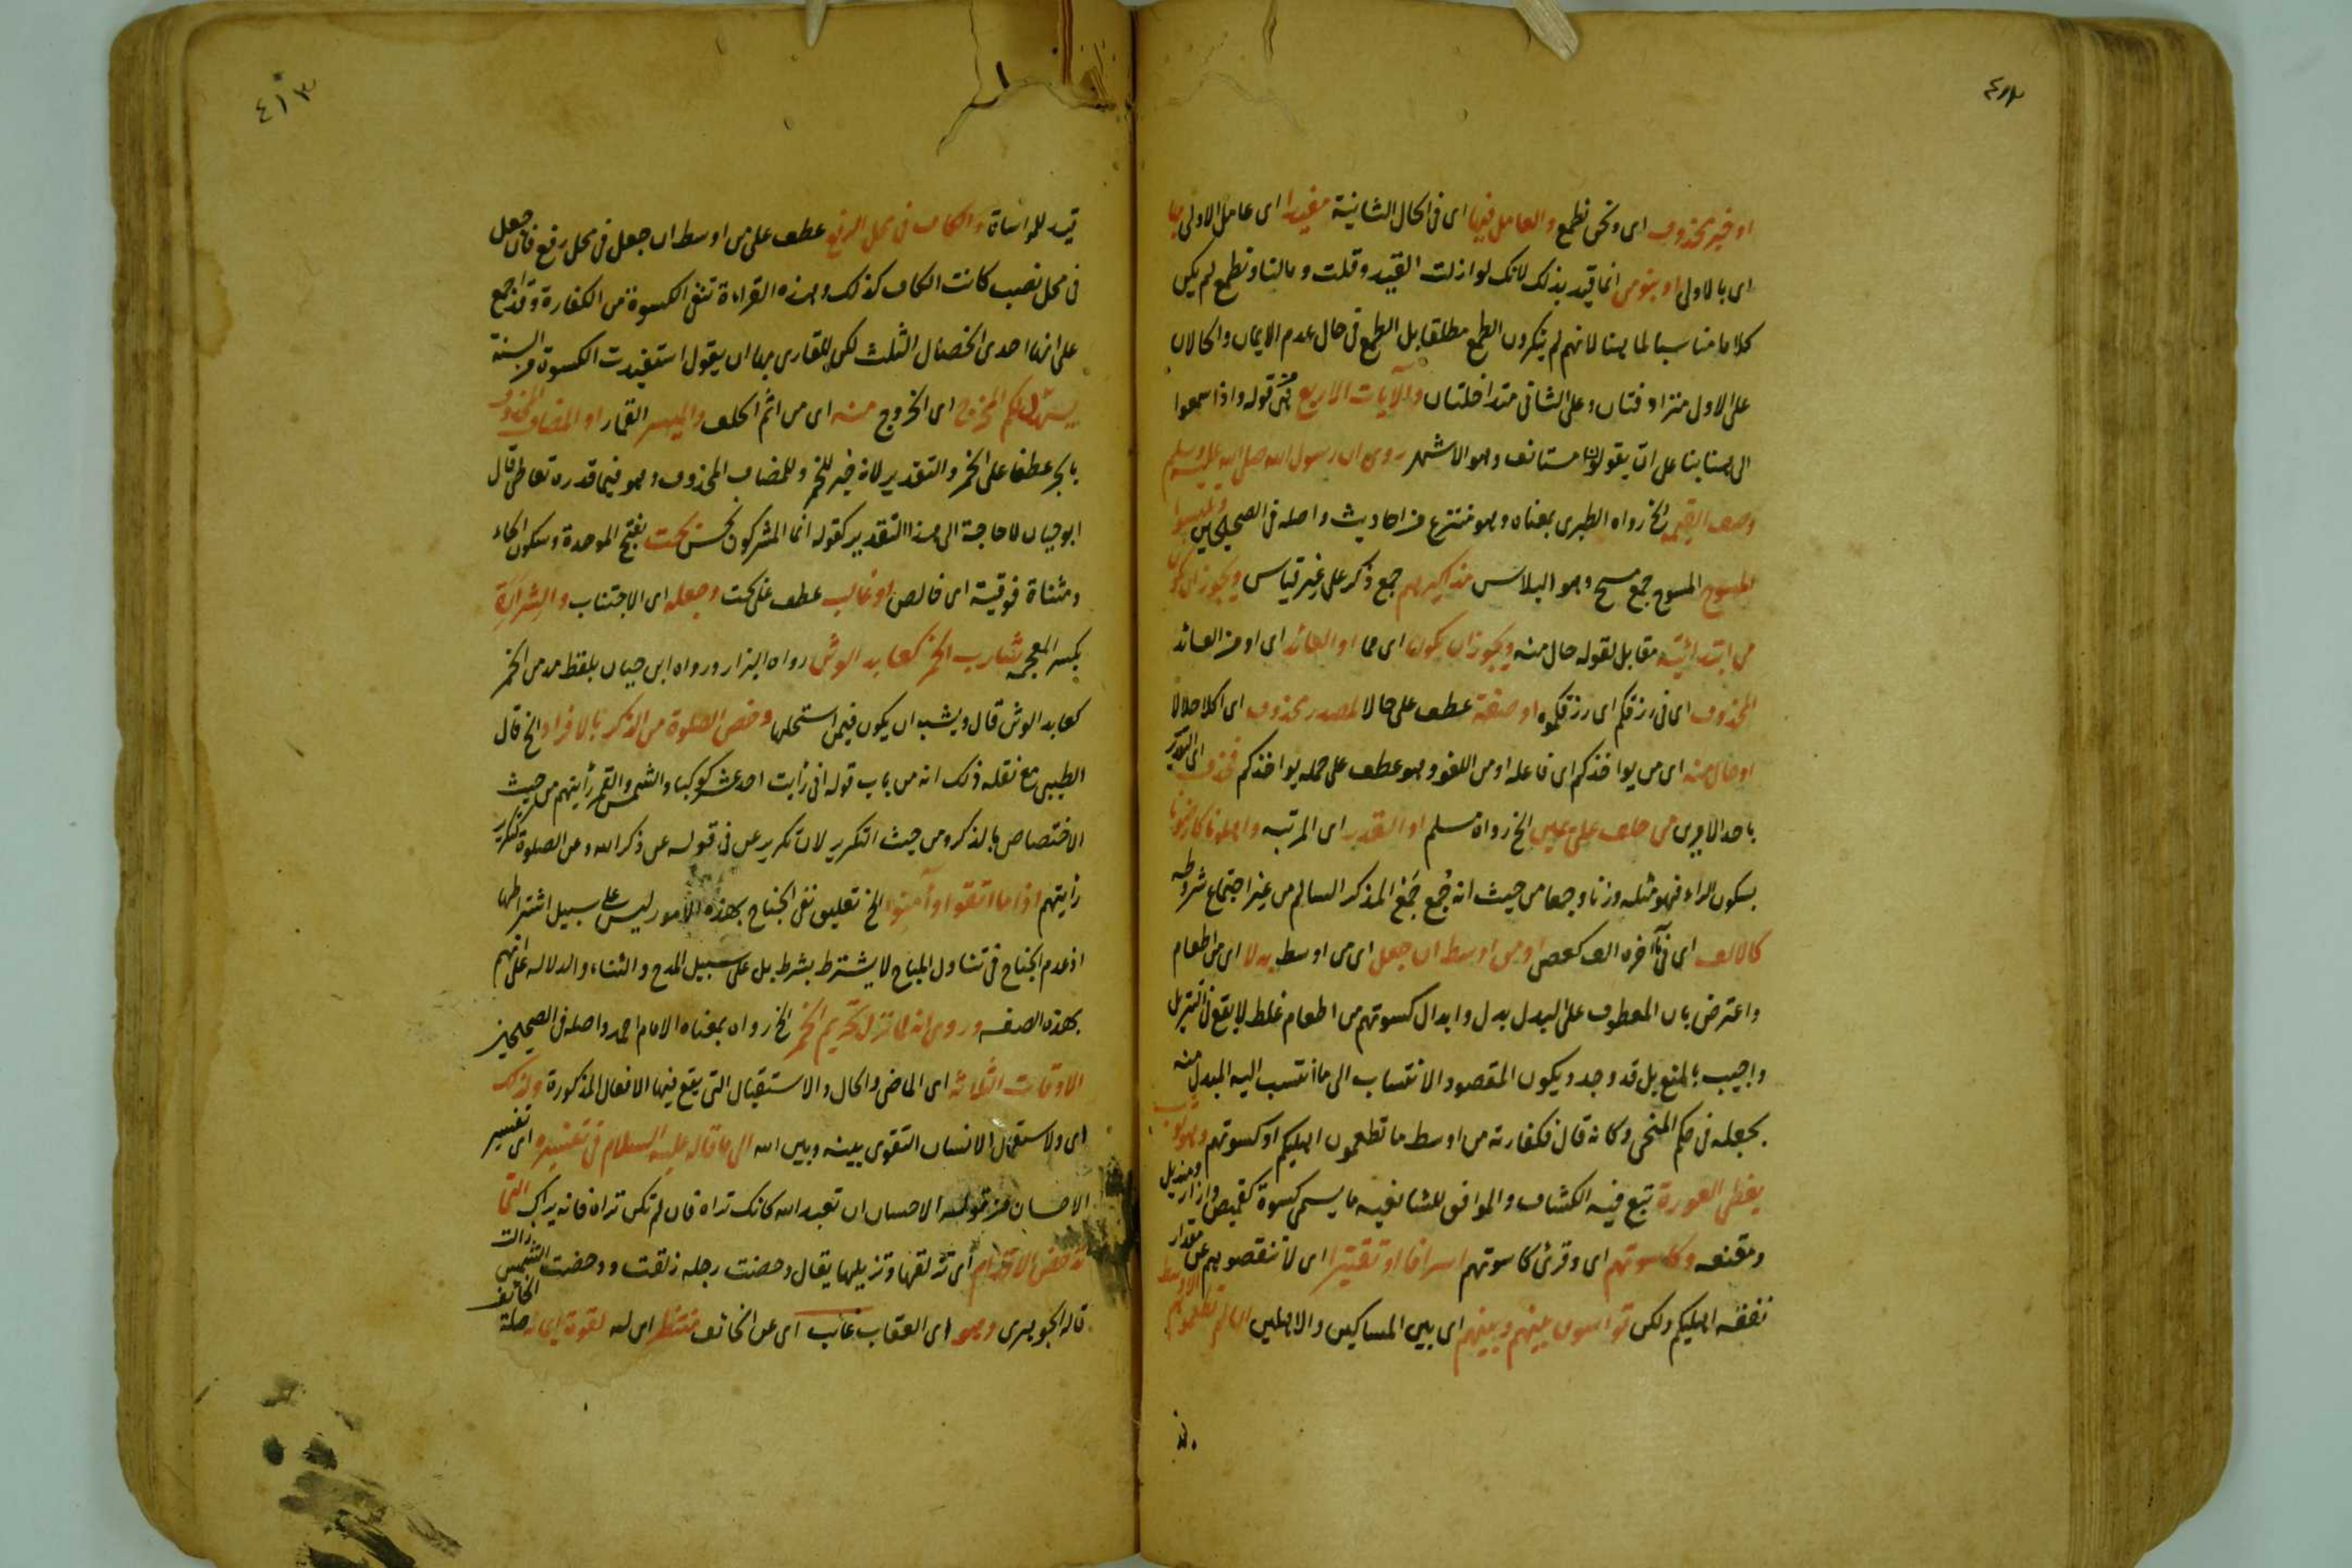 ٤١٢
او خبر محذوف اى ونحن نطمع والعامل فيها اى فى الحال الثانية مقيدا اى عامل الاولى بها
اى بالاولى او بنؤمن انما قيد بذلك لانك لو ازلت القيد وقلت ومالنا ونطمع لم يكن
كلاما مناسبا لما هنا لانهم لم ينكروا الطمع مطلقا بل الطمع فى حال عدم الايمان والحالان
على الاول مترادفتان وعلى الثانى متداخلتان والآيات الاربع من قوله واذا سمعوا
الى هنا بناء على ان يقولون مستانف وهو الاشهر روى ان رسول الله صلى الله عليه وسلم
وصف القيمة الخ رواه الطبرى بمعناه وهو منتزع من احاديث واصله فى الصحيحين ولبسوا
المسوح المسوح جمع مسح وهو البلاس مذاكيرهم جمع ذكر على غير قياس ويجوز ان تكون
من ابتدائية مقابل لقوله حال منه ويجوز ان يكون اى مما او العائد اى او من العائد
المحذوف اى فى رزقكم اى رزقكموه او صفة عطف على حالا لمصدر محذوف اى اكلا حلالا
او حال منه اى من يواخذكم اى فاعله او من اللغو وهو عطف على جملة يواخذكم فحذف اى
باحد الامرين من حلف على يمين الخ رواه مسلم او التقدير اى المرتبه واهلونا كارضونا
بسكون الراء فهو مثله وزنا وجمعا من حيث انه جُمع جَمْع المذكر السالم من غير اجتماع شروطه
كالالف اى فى آخره الف كعصى او من اوسط ان جعل اى من اوسط بدلا اى من اطعام
واعترض بان المعطوف على البدل بدل وابدال كسوتهم من اطعام غلط لا يقع فى التنزيل
واجيب بالمنع بل قد وجد ويكون المقصود الانتساب الى ما انتسب اليه المبدل منه
بجعله فى حكم المنحى وكانه قال فكفارته من اوسط ما تطعمون اهليكم او كسوتهم وهو ثوب
يغطى العورة تبع فيه الكشاف والموافق للشافعيه ما يسمى كسوة كقميص وازار ومنديل
ومقنعه وكاسوتهم اى وقرئ كاسوتهم اسرافا او تقتيرا اى لا تنقصوهم عن مقدار
نفقة اهليكم ولكن تواسون بينهم وبينهم اى بين المساكين والاهلين ان لم تطعموهم الاوسط
٤١٣
قيد للمواساة والكاف فى محل الرفع عطف على من اوسط ان جعل فى محل رفع فان جعل
فى محل نصب كانت الكاف كذلك وهذه القراءة تنفى الكسوة من الكفارة وقد اجمع
على انها احدى الخصال الثلث لكن للقارى بها ان يقول استفيدت الكسوة من السنة
يسهل لكم المخرج اى الخروج منه اى من اثم الحلف والميسر القمار او المضاف المحذوف
بالجر عطفا على الخمر والتقدير لانه خبر للخمر وللمضاف المحذوف وهو فيما قدره تعاطى قال
ابو حيان لا حاجة الى هذا التقدير كقوله انما المشركون نجس بحت بفتح الموحدة وسكون الحاء
ومثناة فوقية اى خالص او غالب عطف على بحت وجعله اى الاجتناب والشرارة
بكسر المعجمه شارب الخمر كعابد الوثن رواه البزار ورواه ابن حبان بلفظ مدمن الخمر
كعابد الوثن قال ويشبه ان يكون فيمن استحلها وخص الصلوة من الذكر بالافراد الخ قال
الطيبى مع نقله ذلك انه من باب قوله انى رايت احد عشر كوكبا والشمس والقمر رأيتهم من حيث
الاختصاص بالذكر ومن حيث التكرير لان تكرير عن فى قوله عن ذكر الله وعن الصلوة كتكرير
رأيتهم اذا ما اتقوا وآمنوا الخ تعليق نفى الجناح بهذه الامور ليس على سبيل اشتراطها
اذ عدم الجناح فى تناول المباح لا يشترط بشرط بل على سبيل المدح والثناء والدلالة على انهم
بهذه الصفه وروى انه لما نزل تحريم الخمر الخ رواه بمعناه الامام احمد واصله فى الصحيحين
الاوقات الثلاثه اى الماضى والحال والاستقبال التى يقع فيها الافعال المذكورة ولذلك
اى ولاستعمال الانسان التقوى بينه وبين الله الى ما قاله عليه السلام فى تفسيره اى تفسير
الاحسان من قوله الاحسان ان تعبد الله كانك تراه فان لم تكن تراه فانه يراك التى
تدحض الاقدام اى تزلقها وتزيلها يقال دحضت رجله زلقت ودحضت الشمس زالت
قاله الجوهرى وهو اى العقاب غائب اى عن الخائف منتظر اى له لقوة ايمانه صلة الخائف